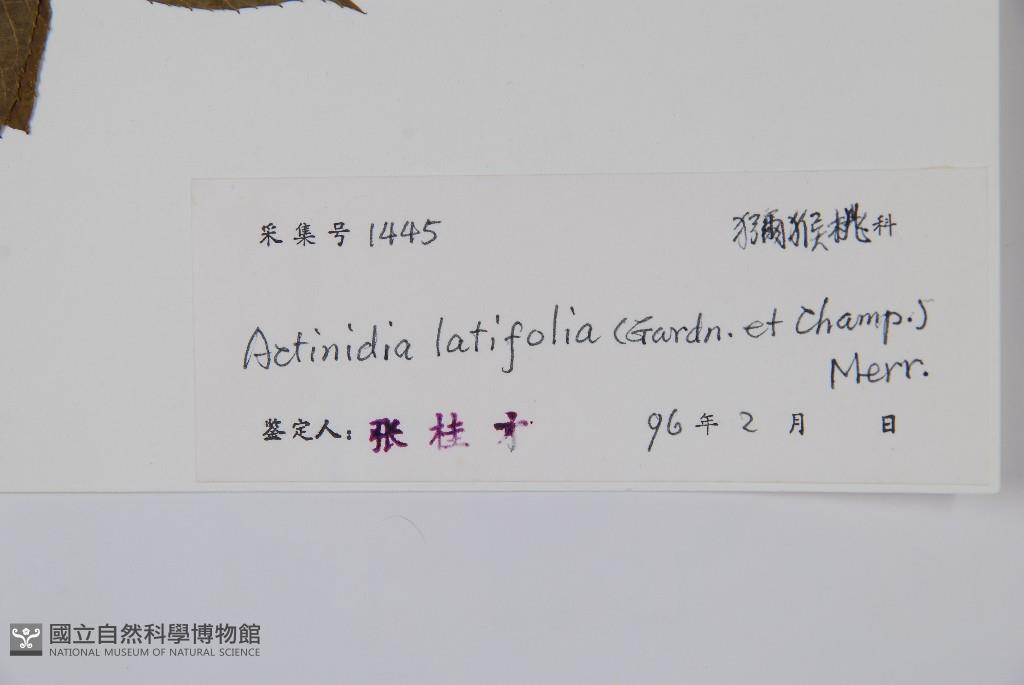 采集号 1445 獼猴桃科
Actinidia latifolia (Gardn. et Champ.)
Merr.
鉴定人: 张桂才 96年2月 日
國立自然科學博物館
NATIONAL MUSEUM OF NATURAL SCIENCE